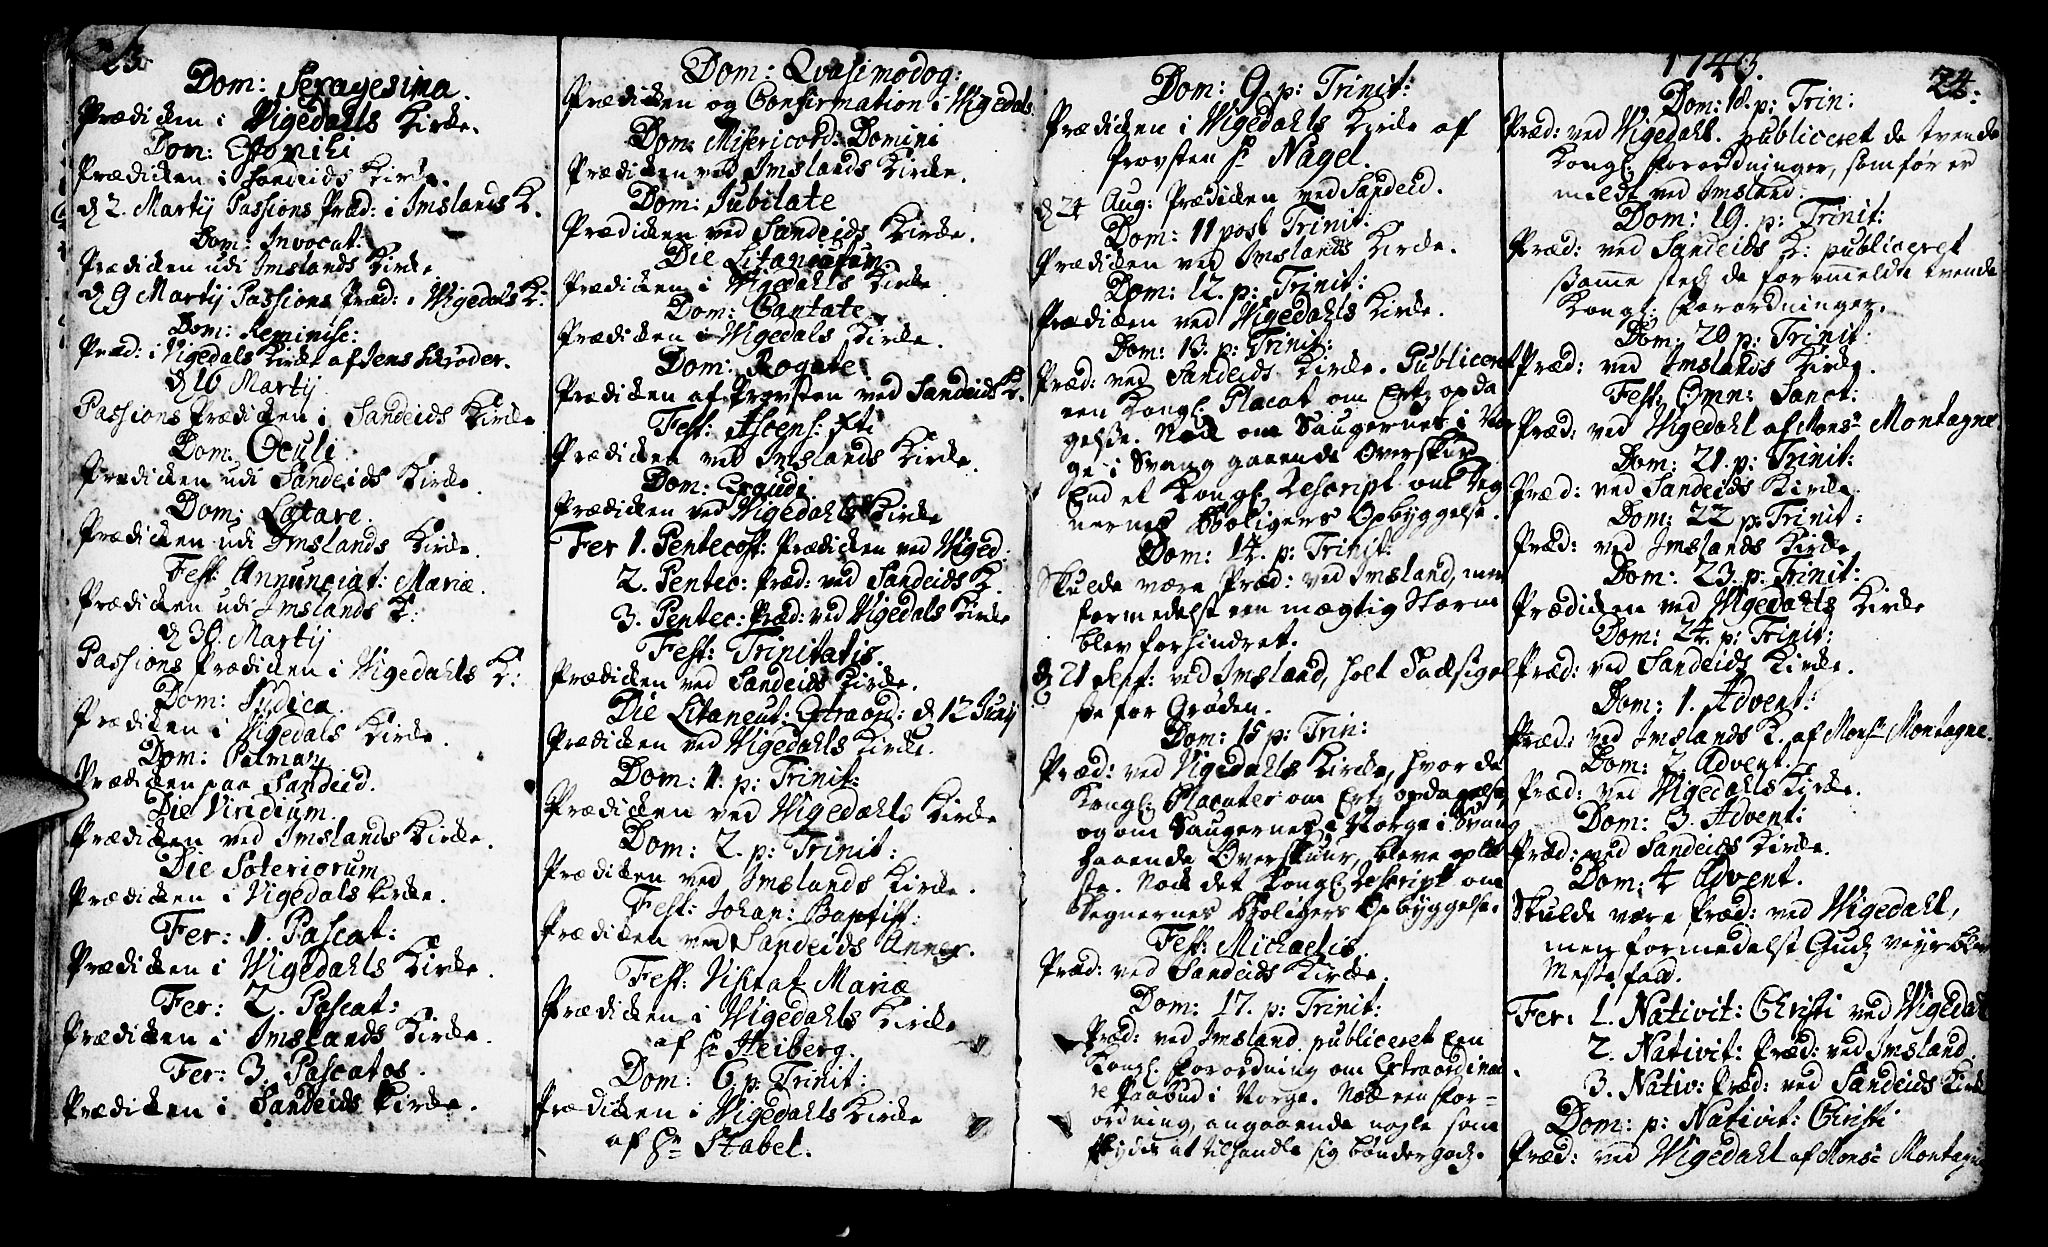 23.
Dom: Sexagesima.
Prædicken i Vigedahls Kirke.
Dom: Estomihi
Prædicken i Sandeids Kirke.
d 2. Martij Passions Præd: i Imslands K.
Dom: Invocat:
Prædicken udi Imslands Kirke
d 9 Martij Passions Præd: i Vigedals K:
Dom: Reminisc:
Præd: i Vigedals Kirke af Jens Schrøder.
d 16 Martij
Passions Prædicken i Sandeids Kirke
Dom: Oculi
Prædicken udi Sandeids Kirke.
Dom: Lætare.
Prædicken udi Imslands Kirke.
Fest: Annunciat: Mariæ.
Prædicken udi Imslands K:
d 30. Martij
Passions Prædicken i Vigedahls K:
Dom: Judica.
Prædicken i Vigedals Kirke.
Dom: Palmar:
Prædicken paa Sandeid.
Die Viridium.
Prædicken ved Imslands Kirke.
Die Soteriorum
Prædicken i Vigedals Kirke.
Fer: 1. Pascat:
Prædicken i Vigedahls Kirke.
Fer: 2. Pascat:
Prædicken i Imslands Kirke.
Fer: 3. Pascatos.
Prædicken i Sandeids Kirke.
Dom: Qvasimodog:
Prædicken og Confirmation i Vigedals
Dom: Misericord: Domini
Prædicken ved Imslands Kirke.
Dom: Jubilate
Prædicken ved Sandeids Kirke.
Die Litaneutum
Prædicken i Vigedahls Kirke
Dom: Cantate
Prædicken i Vigedals Kirke.
Dom: Rogate
Prædicken af Provsten ved Sandeids K.
Fest: Ascens: Xti
Prædicken ved Imslands Kirke.
Dom: Exaudi
Prædicken ved Vigedahls Kirke
Fer 1. Pentecost: Prædicken ved Viged:
2. Pentec: Præd: ved Sandeids K.
3. Pentec: Præd: ved Vigedals Kirke
Fest: Trinitatis.
Prædicken ved Sandeids Kirke.
Die Litaneut: Extraord: d 12 Junij
Prædicken ved Vigedahls Kirke.
Dom: 1. p: Trinit:
Prædicken ved Vigedahls Kirke
Dom: 2. p: Trinit:
Prædicken ved Imslands Kirke.
Fest: Johan: Baptist:
Prædicken ved Sandeids Annex.
Fest: Visitat Mariæ
Prædicken i Vigedahls Kirke
af Hr Heiberg.
Dom: 6 p: Trinit:
Prædicken i Vigedahls Kirke
af Hr Stabel.
Dom: 9. p: Trinit:
Prædicken i Vigedahls Kirke af
Provsten Hr Nagel.
d 24 Aug: Prædicken ved Sandeid.
Dom: 11 post Trinit:
Prædicken ved Imslands Kirke.
Dom: 12. p: Trinit:
Prædicken ved Vigedahls Kirke.
Dom: 13. p: Trinit:
Præd: ved Sandeids Kirke. Publiceret
een Kongl: Placat om Ertz opda
gelse. Nock om Saugernes i Nor
ge i Svang gaaende Overskur
End et Kongl: Rescript om Deg
nernes Boligers Opbyggelse.
Dom: 14. p: Trinit:
Skulde være Præd: ved Imsland, men
formedelst een mægtig Storm
blev forhindret.
d 21 Sept: ved Imsland, holt Tacksigel
se for Grøden.
Dom: 15 p: Trin:
Præd: ved Vigedahls Kirke, hvor de
Kongl: Placater om Ertz opdagelse,
og om Saugernes i Norge i Svang
gaaende Overskuur, bleve oplæ
ste. Nock det Kongl: Rescript om
Degnernes Boligers Opbyggelse.
Fest: Michaelis.
Præd: ved Sandeids Kirke.
Dom: 17. p: Trinit:
Præd: ved Imsland publiceret Een
Kongl: Forordning om Extraordinai
re Paabud i Norge. Nock een For=
ordning, angaaende nogle som
at tilhandle sig bøndergodz.
1746.
24.
Dom: 18. p: Trin:
Præd: ved Vigedahl. publiceret de tvende
Kongl: Forordninger, som før er
meldt ved Imsland.
Dom: 19. p: Trinit:
Præd: ved Sandeids K: publiceret
samme sted de formeldte tvende
Kongl: Forordninger.
Dom: 20 p: Trinit:
Præd: ved Imslands Kirke.
Fest: Omn: Sanct:
Præd: ved Vigedahl af Monsr Montagne
Dom: 21. p: Trinit:
Præd: ved Sandeids Kirke.
Dom: 22 p: Trinit:
Præd: ved Imslands Kirke
Dom: 23. p: Trinit:
Prædicken ved Vigedahls Kirke
Dom: 24. p: Trinit:
Præd: ved Sandeids Kirke.
Dom: 1. Advent:
Præd: ved Imslands K. af Monsr Montagne.
Dom: 2 Advent.
Præd: ved Vigedahls Kirke.
Dom: 3. Advent:
Præd: ved Sandeids Kirke.
Dom: 4 Advent.
Skulde være Præd: ved Vigedahl,
men formedelst Gudz veyr blev
Messefald.
Fer. 1. Nativit: Christi ved Vigedal
2. Nativit: Præd: ved Imsland.
3. Nativ: Præd: ved Sandeids Kirke
Dom: p: Nativit: Christi
Præd: ved Vigedahl af Monsr Montagne